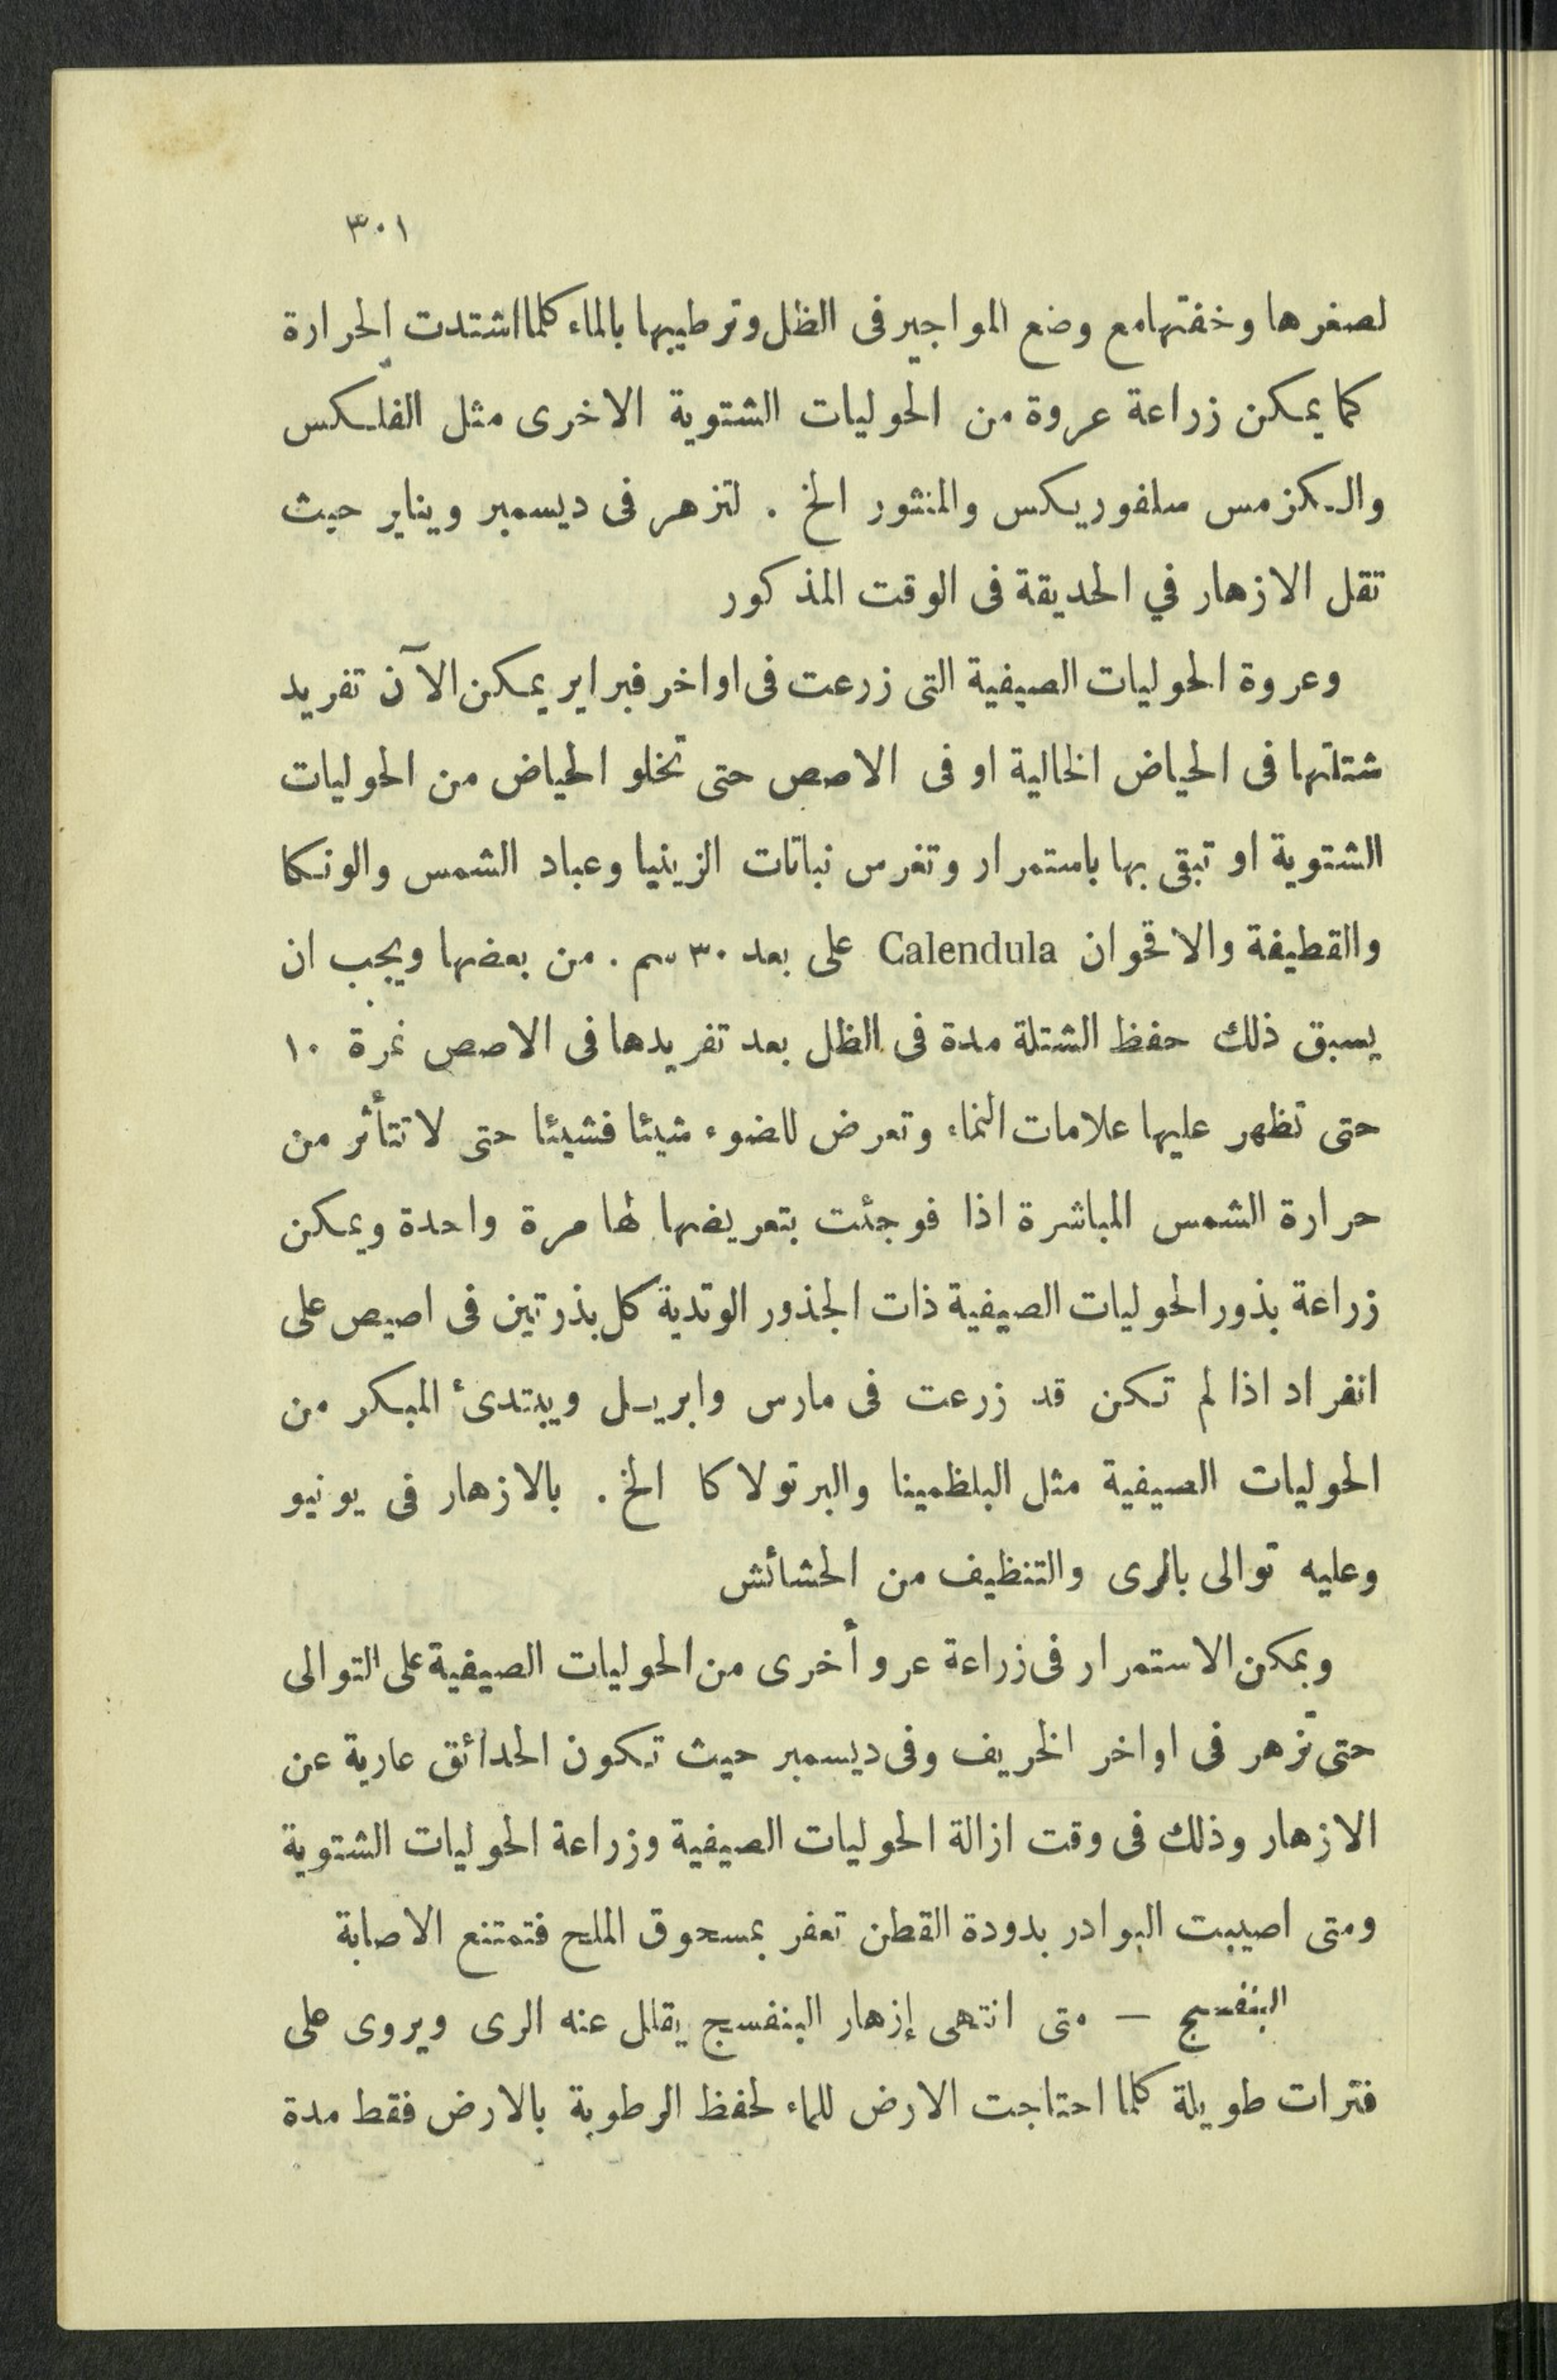 ٣٠١
لصغرها وخفتها مع وضع المواجير فى الظل وترطيبها بالماء كلما اشتدت الحرارة
كما يمكن زراعة عروة من الحوليات الشتوية الاخرى مثل الفلكس
والكزمس سلفوريكس والمنثور الخ . لتزهر فى ديسمبر ويناير حيث
تقل الازهار في الحديقة فى الوقت المذكور
وعروة الحوليات الصيفية التى زرعت فى اواخر فبراير يمكن الآن تفريد
شتلتها فى الحياض الخالية او فى الاصص حتى تخلو الحياض من الحوليات
الشتوية او تبقى بها باستمرار وتغرس نباتات الزينيا وعباد الشمس والونكا
والقطيفة والاقحوان Calendula على بعد ٣٠ سم . من بعضها ويجب ان
يسبق ذلك حفظ الشتلة مدة فى الظل بعد تفريدها فى الاصص نمرة ١٠
حتى تظهر عليها علامات النماء وتعرض للضوء شيئا فشيئا حتى لا تتأثر من
حرارة الشمس المباشرة اذا فوجئت بتعريضها لها مرة واحدة ويمكن
زراعة بذور الحوليات الصيفية ذات الجذور الوتدية كل بذرتين فى اصيص على
انفراد اذا لم تكن قد زرعت فى مارس وابريل ويبتدىء المبكر من
الحوليات الصيفية مثل البلظمينا والبرتولاكا الخ . بالازهار فى يونيو
وعليه توالى بالرى والتنظيف من الحشائش
ويمكن الاستمرار فى زراعة عرو أخرى من الحوليات الصيفية على التوالى
حتى تزهر فى اواخر الخريف وفى ديسمبر حيث تكون الحدائق عارية عن
الازهار وذلك فى وقت ازالة الحوليات الصيفية وزراعة الحوليات الشتوية
ومتى اصيبت البوادر بدودة القطن تعفر بمسحوق الملح فتمتنع الاصابة
البنفسج — متى انتهى إزهار البنفسج يقلل عنه الرى ويروى على
فترات طويلة كلما احتاجت الارض للماء لحفظ الرطوبة بالارض فقط مدة